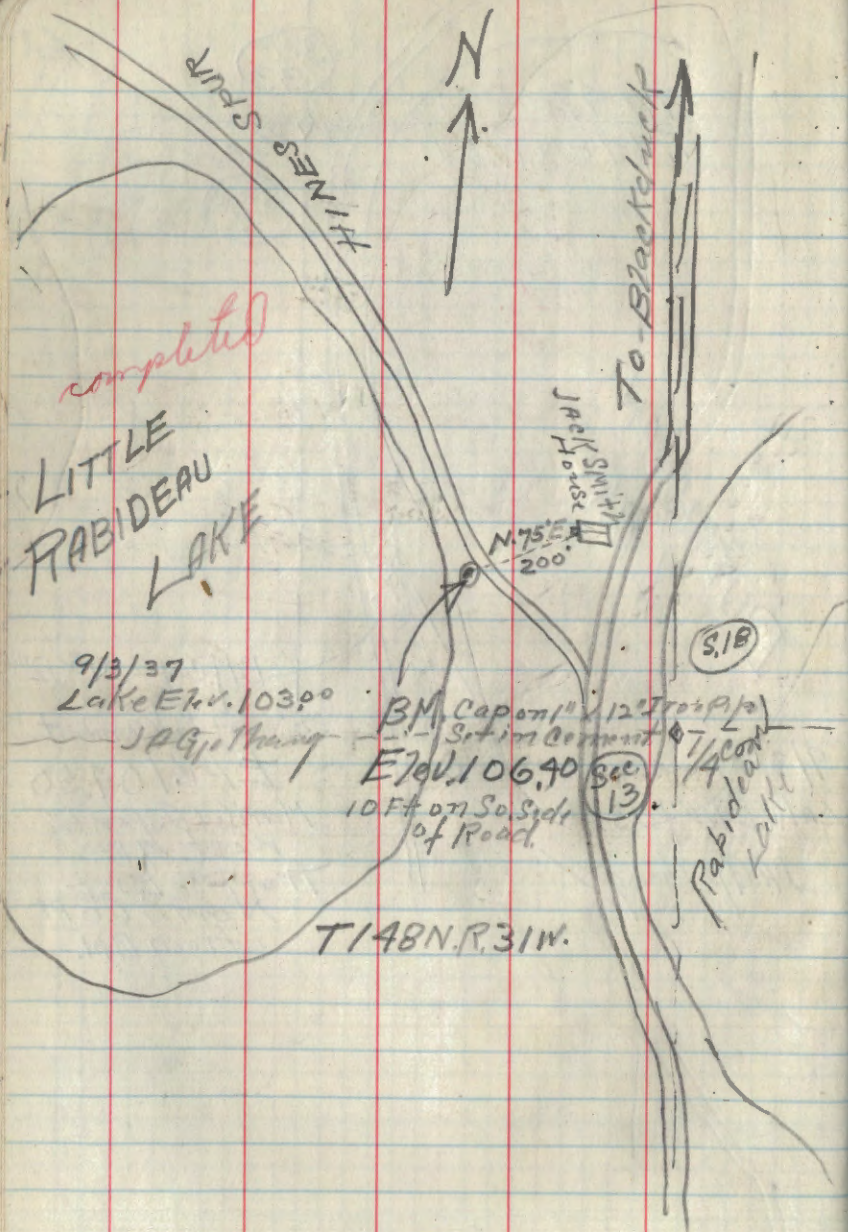 N
HINES SPUR
To Blackduck
completed
LITTLE
RABIDEAU
LAKE
JACK SMITH
House
N.75°E
200'
S.18
9/3/37
Lake Elev. 103.00
BM. Cap on 1" x 12" Iron Pipe
Set in Cement
1/4 cor
Elev. 106.40
Sec
13
10 Ft on So. Side
of Road.
Rabideau
Lake
T148N.R.31W.